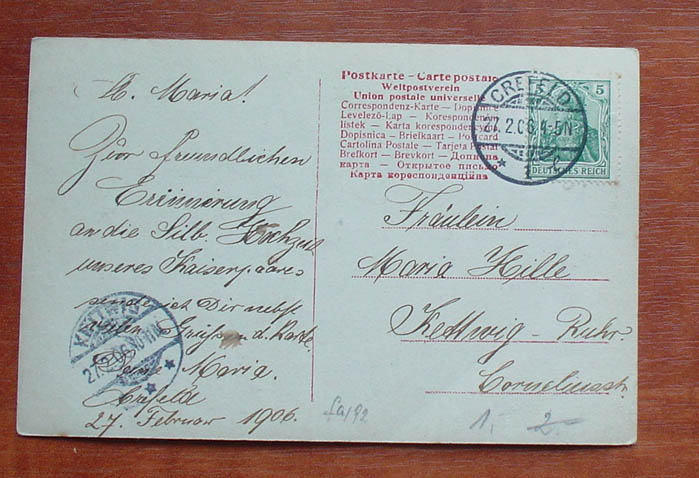 Lb. Maria!
Zur freundlichen
Erinnerung
an die Silb. Hochzeit
unseres Kaiserpaares
sende ich Dir nebst
vielen Grüßen d. Karte.
Deine Maria.
Crefeld
27. Februar 1906.
Postkarte – Carte postale
Weltpostverein
Union postale universelle
Correspondenz-Karte – Dopisnice
Levelező-Lap – Korespondenční
listek – Karta korespondencyjna
Dopisnica – Briefkaart – Postcard
Cartolina Postale – Tarjeta Postal
Brefkort – Brevkort – Дописна
карта – Открытое письмо
Карта кореспонденційна
CREFELD
27.2.06.4-5N
5
DEUTSCHES REICH
Fräulein
Maria Hille
Kettwig-Ruhr.
Corneliusstr.
KETTWIG
1,- 2.-